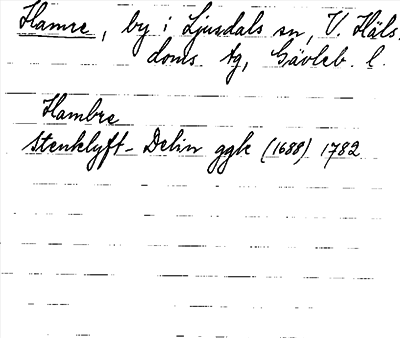 Hamre, by i Ljusdals sn, V. Häls.
doms. tg, Gävleb. l.
Hambre
Stenklyft-Delin ggk (1688) 1782